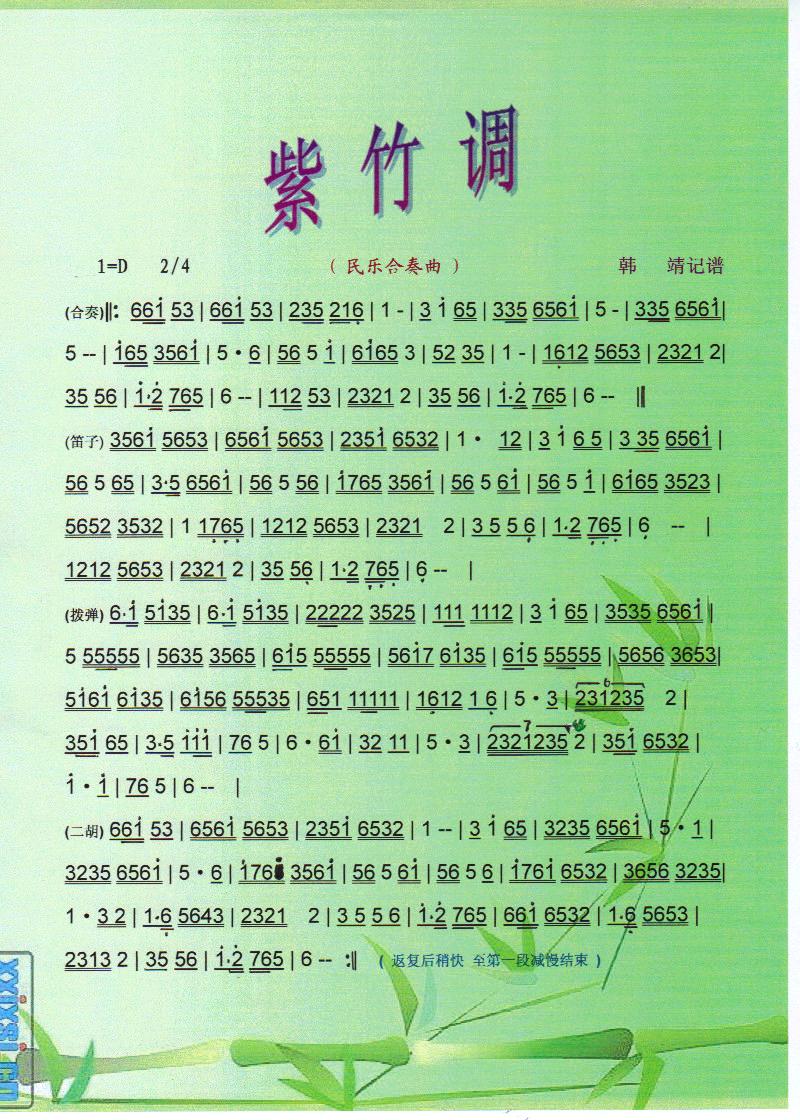 紫竹调
1=D 2/4 ( 民乐合奏曲 ) 韩 靖记谱
(合奏)‖: 66i̇ 53 | 66i̇ 53 | 235 216̣ | 1 - | 3 i̇ 65 | 335 656i̇ | 5 - | 335 656i̇ |
5 -- | i̇65 356i̇ | 5 · 6 | 56 5 i̇ | 6i̇65 3 | 52 35 | 1 - | 16̣12 5653 | 2321 2 |
35 56 | i̇·2̇ 765 | 6 -- | 112 53 | 2321 2 | 35 56 | i̇·2̇ 765 | 6 -- ‖
(笛子) 356i̇ 5653 | 656i̇ 5653 | 235i̇ 6532 | 1 · 12 | 3 i̇ 6 5 | 3 35 656i̇ |
56 5 65 | 3·5 656i̇ | 56 5 56 | i̇765 356i̇ | 56 5 6i̇ | 56 5 i̇ | 6i̇65 3523 |
5652 3532 | 1 17̣6̣5̣ | 1212 5653 | 2321 2 | 3 5 5 6̣ | 1·2 7̣6̣5̣ | 6̣ -- |
1212 5653 | 2321 2 | 35 56̣ | 1·2 7̣6̣5̣ | 6̣ -- |
(拨弹) 6·i̇ 5i̇35 | 6·i̇ 5i̇35 | 22222 3525 | 111 1112 | 3 i̇ 65 | 3535 656i̇ |
5 55555 | 5635 3565 | 6i̇5 55555 | 56i̇7 6i̇35 | 6i̇5 55555 | 5656 3653 |
5i̇6i̇ 6i̇35 | 6i̇56 55535 | 651 11111 | 16̣12 1 6̣ | 5 · 3 | 231235 2 |
6
35i̇ 65 | 3·5 i̇i̇i̇ | 76 5 | 6 · 6i̇ | 32 11 | 5 · 3 | 2321235 2 | 35i̇ 6532 |
7
i̇ · i̇ | 76 5 | 6 -- |
(二胡) 66i̇ 53 | 656i̇ 5653 | 235i̇ 6532 | 1 -- | 3 i̇ 65 | 3235 656i̇ | 5 · 1 |
3235 656i̇ | 5 · 6 | i̇76 356i̇ | 56 5 6i̇ | 56 5 6 | i̇76i̇ 6532 | 3656 3235 |
1 · 3 2 | 1·6̣ 5643 | 2321 2 | 3 5 5 6 | i̇·2̇ 765 | 66i̇ 6532 | 1·6̣ 5653 |
2313 2 | 35 56 | i̇·2̇ 765 | 6 -- :‖ ( 返复后稍快 至第一段减慢结束 )